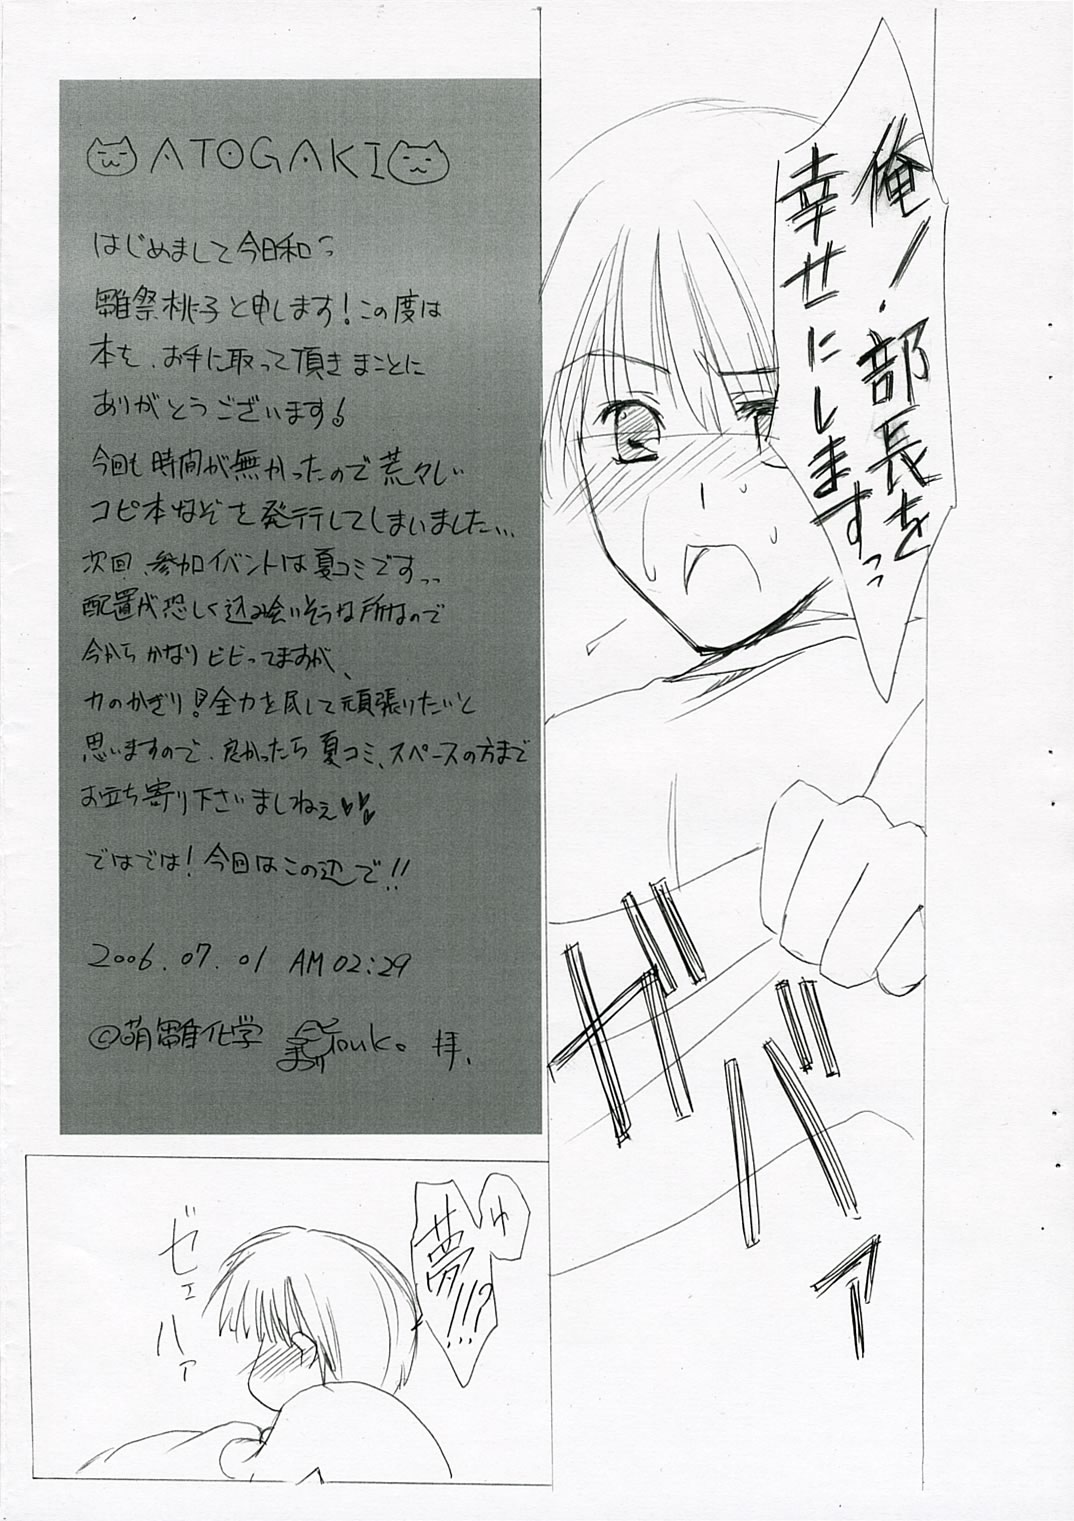 俺!部長を
幸せにしますっっ
ガバァ
ゆ
夢!!!?
ゼェ
ハァ
ATOGAKI
はじめまして今日和っ
雛祭桃子と申します!この度は
本を、お手に取って頂きまことに
ありがとうございます!
今回も時間が無かったので荒々しい
コピ本なぞを発行してしまいました…
次回、参加イベントは夏コミですっっ
配置が恐しく込み会いそうな所なので
今からかなりビビってますが、
力のかぎり!全力を尽して頑張りたいと
思いますので、良かったら夏コミ、スペースの方まで
お立ち寄り下さいましねぇ♥♥
ではでは!今回はこの辺で!!
2006.07.01 AM 02:29
©萌雛化学 Touko 拝、